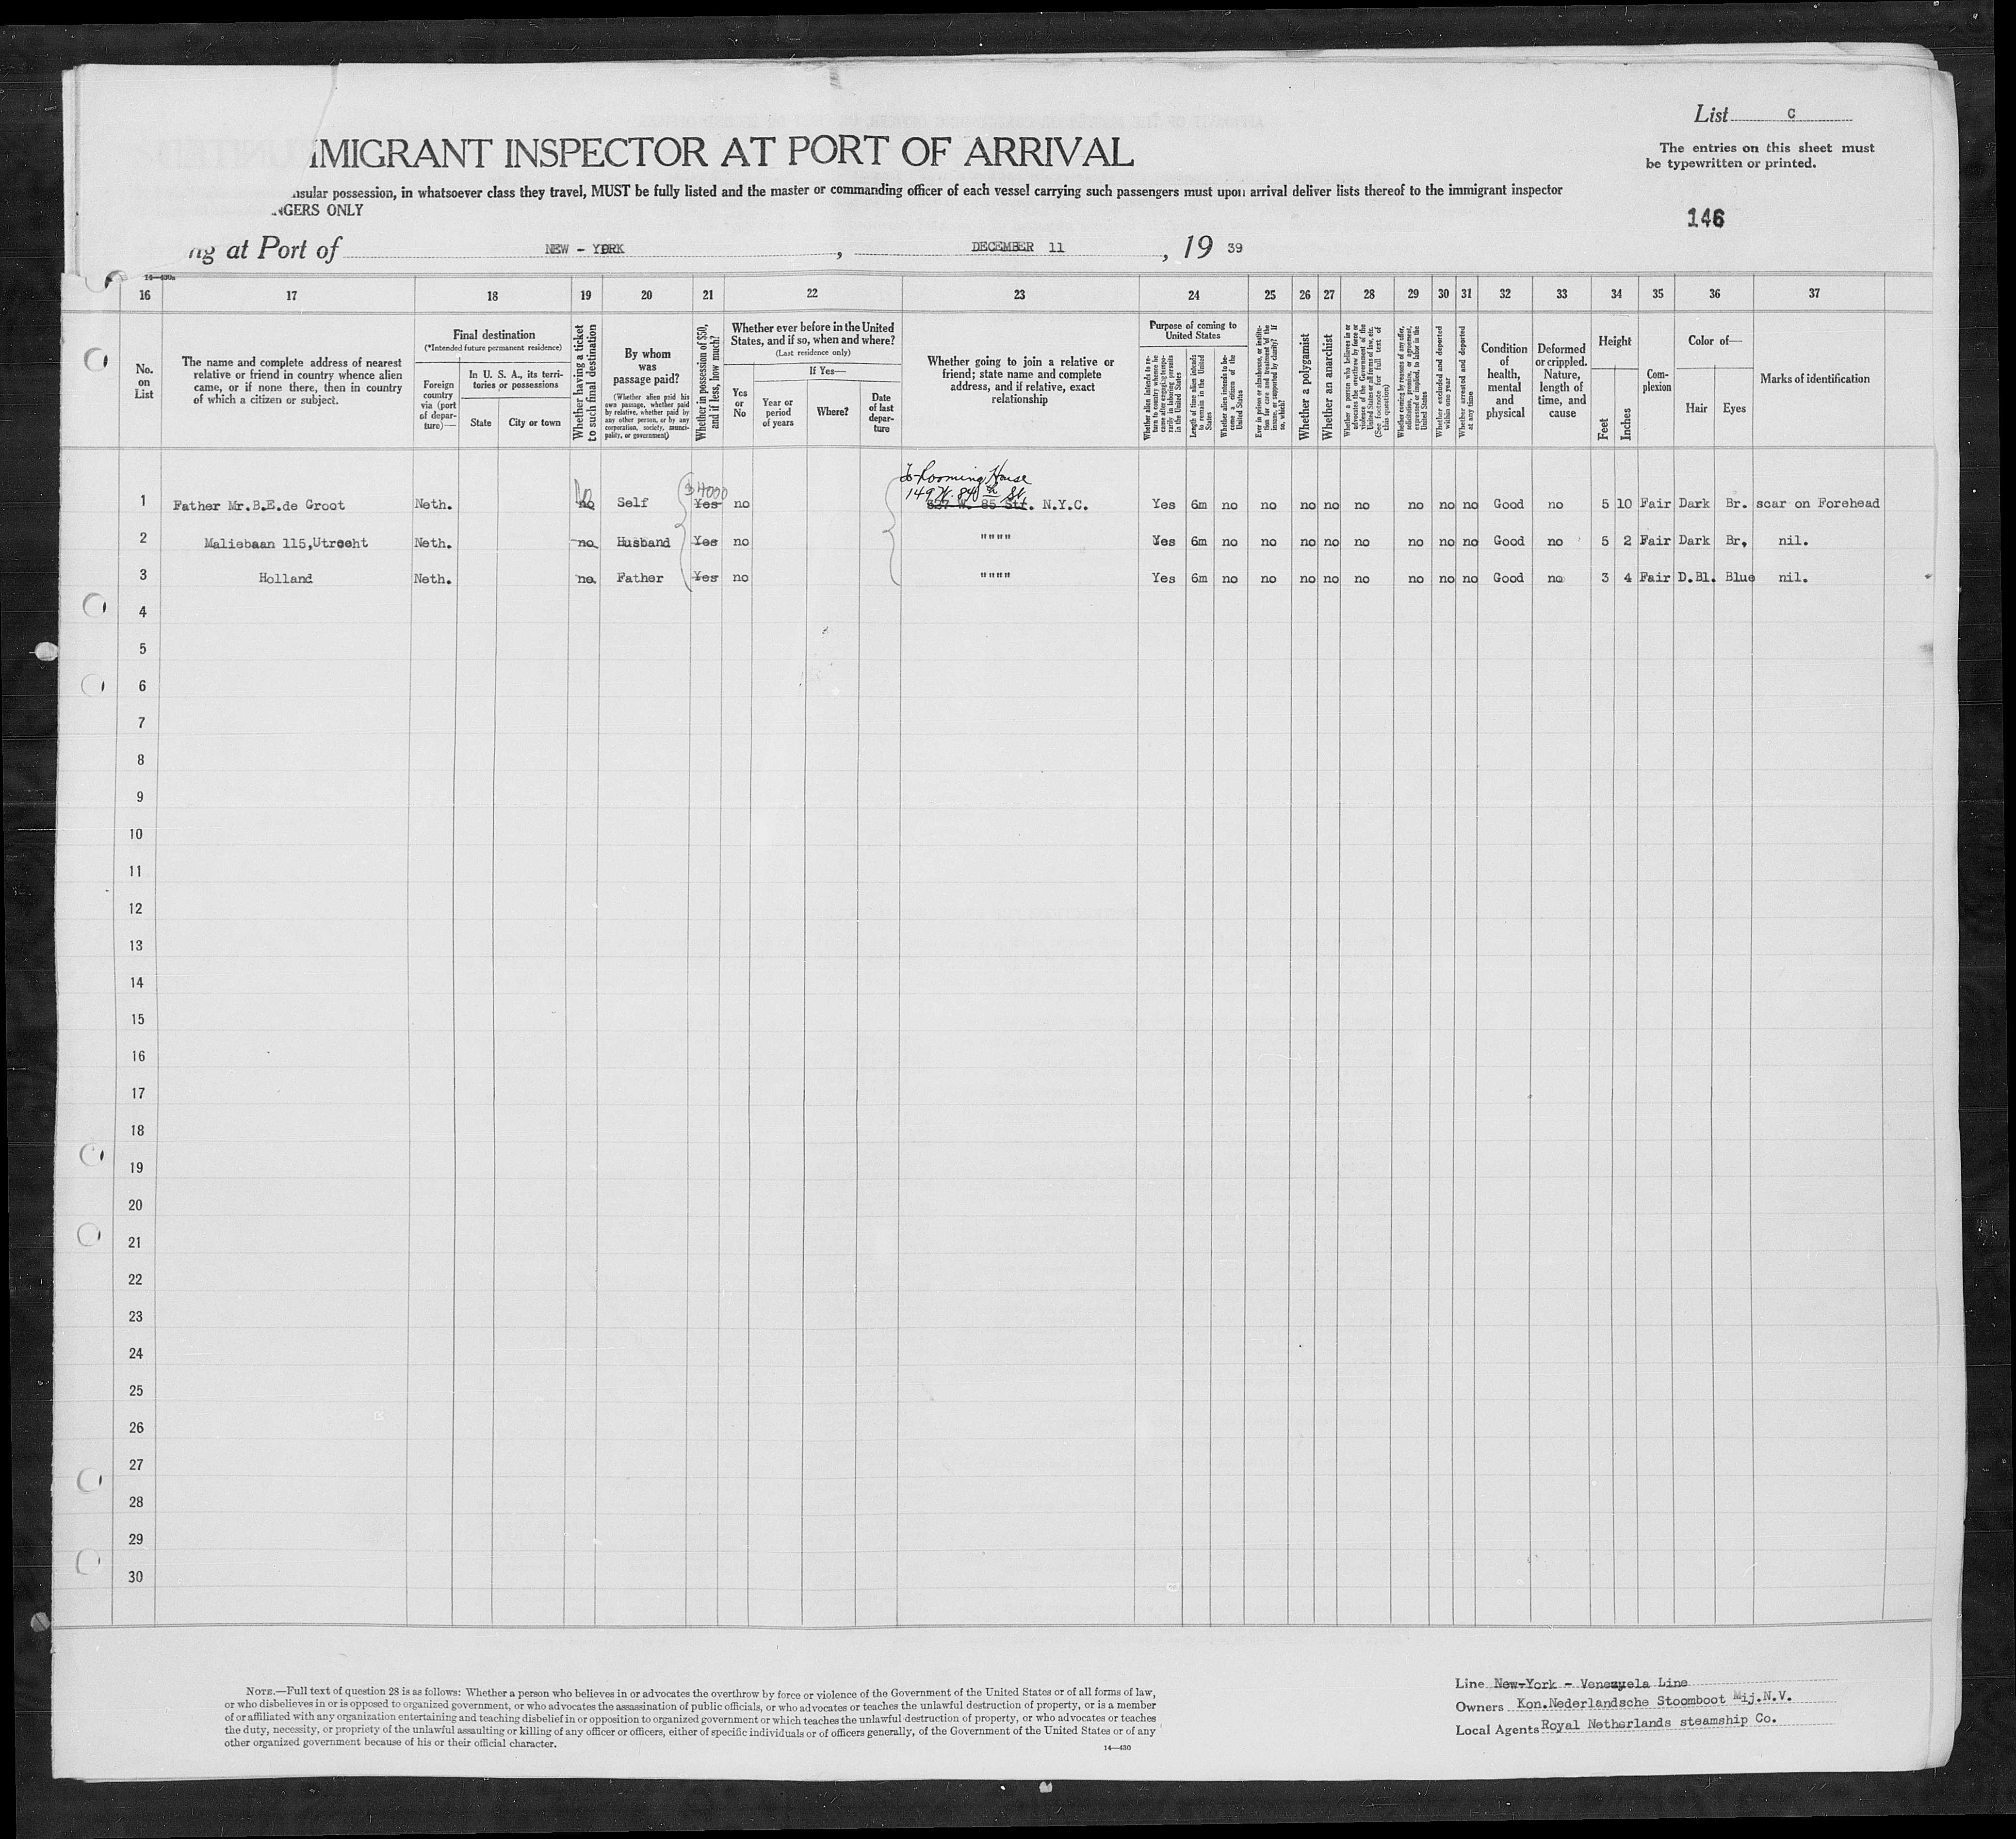 List C
The entries on this sheet must
be typewritten or printed.
IMIGRANT INSPECTOR AT PORT OF ARRIVAL
nsular possession, in whatsoever class they travel, MUST be fully listed and the master or commanding officer of each vessel carrying such passengers must upon arrival deliver lists thereof to the immigrant inspector
NGERS ONLY
146
ng at Port of NEW - YORK , DECEMBER 11 , 19 39
16 17 18 19 20 21 22 23 24 25 26 27 28 29 30 31 32 33 34 35 36 37
No.
on
List
The name and complete address of nearest
relative or friend in country whence alien
came, or if none there, then in country
of which a citizen or subject.
Final destination
(*Intended future permanent residence)
Foreign
country
via (port
of depar-
ture)—
In U. S. A., its terri-
tories or possessions
State City or town
Whether having a ticket
to such final destination
By whom
was
passage paid?
(Whether alien paid his
own passage, whether paid
by relative, whether paid by
any other person, or by any
corporation, society, munici-
pality, or government)
Whether in possession of $50,
and if less, how much?
Whether ever before in the United
States, and if so, when and where?
(Last residence only)
Yes
or
No
If Yes—
Year or
period
of years
Where?
Date
of last
depar-
ture
Whether going to join a relative or
friend; state name and complete
address, and if relative, exact
relationship
Purpose of coming to
United States
Whether alien intends to re-
turn to country whence he
came after engaging tempo-
rarily in laboring pursuits
in the United States
Length of time alien intends
to remain in the United
States
Whether alien intends to be-
come a citizen of the
United States
Ever in prison or almshouse, or institu-
tion for care and treatment of the
insane, or supported by charity? If
so, which?
Whether a polygamist
Whether an anarchist
Whether a person who believes in or
advocates the overthrow by force or
violence of the Government of the
United States or all forms of law, etc.
(See footnote for full text of
this question)
Whether coming by reasons of any offer,
solicitation, promise, or agreement,
expressed or implied, to labor in the
United States
Whether excluded and deported
within one year
Whether arrested and deported
at any time
Condition
of
health,
mental
and
physical
Deformed
or crippled.
Nature,
length of
time, and
cause
Height
Feet Inches
Com-
plexion
Color of—
Hair Eyes
Marks of identification
To Rooming House
$4000 149 W. 84th St.
1 Father Mr.B.E.de Groot Neth. no Self Yes no 337 W. 85 Str. N.Y.C. Yes 6m no no no no no no no no Good no 5 10 Fair Dark Br. scar on Forehead
2 Maliebaan 115,Utrecht Neth. no Husband Yes no """" Yes 6m no no no no no no no no Good no 5 2 Fair Dark Br. nil.
3 Holland Neth. no Father Yes no """" Yes 6m no no no no no no no no Good no 3 4 Fair D.Bl. Blue nil.
4
5
6
7
8
9
10
11
12
13
14
15
16
17
18
19
20
21
22
23
24
25
26
27
28
29
30
NOTE.—Full text of question 28 is as follows: Whether a person who believes in or advocates the overthrow by force or violence of the Government of the United States or of all forms of law,
or who disbelieves in or is opposed to organized government, or who advocates the assassination of public officials, or who advocates or teaches the unlawful destruction of property, or is a member
of or affiliated with any organization entertaining and teaching disbelief in or opposition to organized government or which teaches the unlawful destruction of property, or who advocates or teaches
the duty, necessity, or propriety of the unlawful assaulting or killing of any officer or officers, either of specific individuals or of officers generally, of the Government of the United States or of any
other organized government because of his or their official character.
14—430
Line New-York - Venezuela Line
Owners Kon.Nederlandsche Stoomboot Mij.N.V.
Local Agents Royal Netherlands steamship Co.